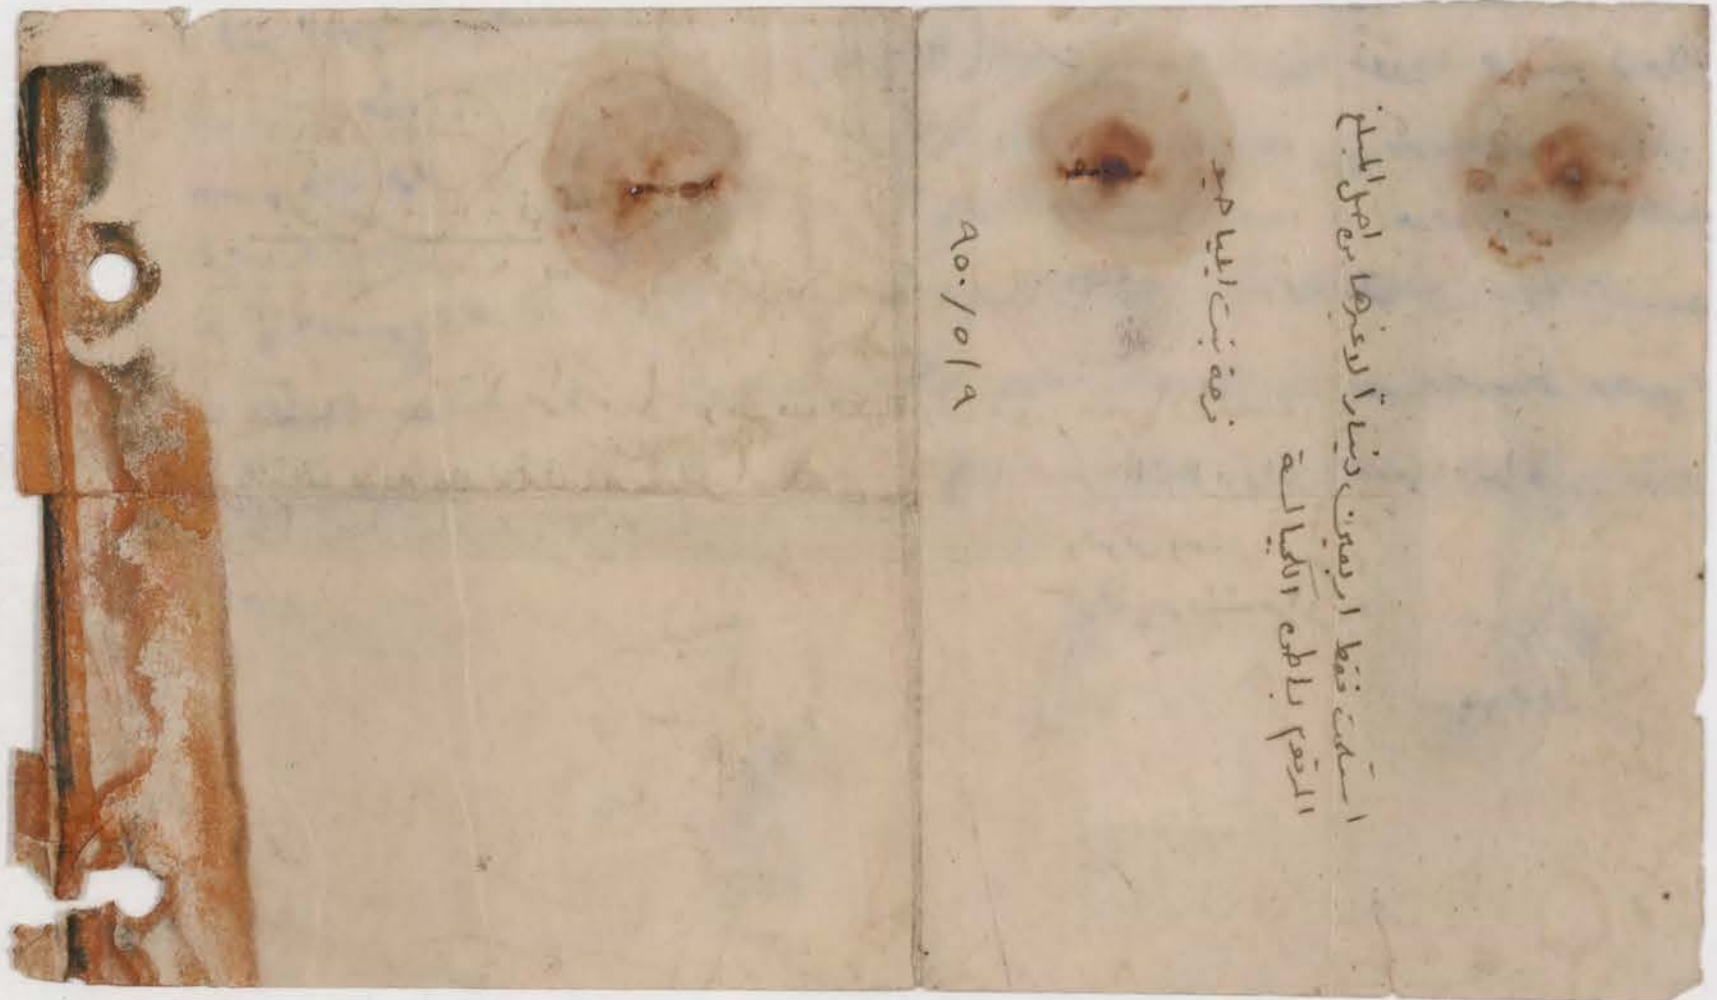 استلمت فقط اربعين ديناراً لا غيرها من اصل المبلغ
المرقم باطن الكمبيالة
نزهة بنت الياهو
٩٥٠/٥/٩